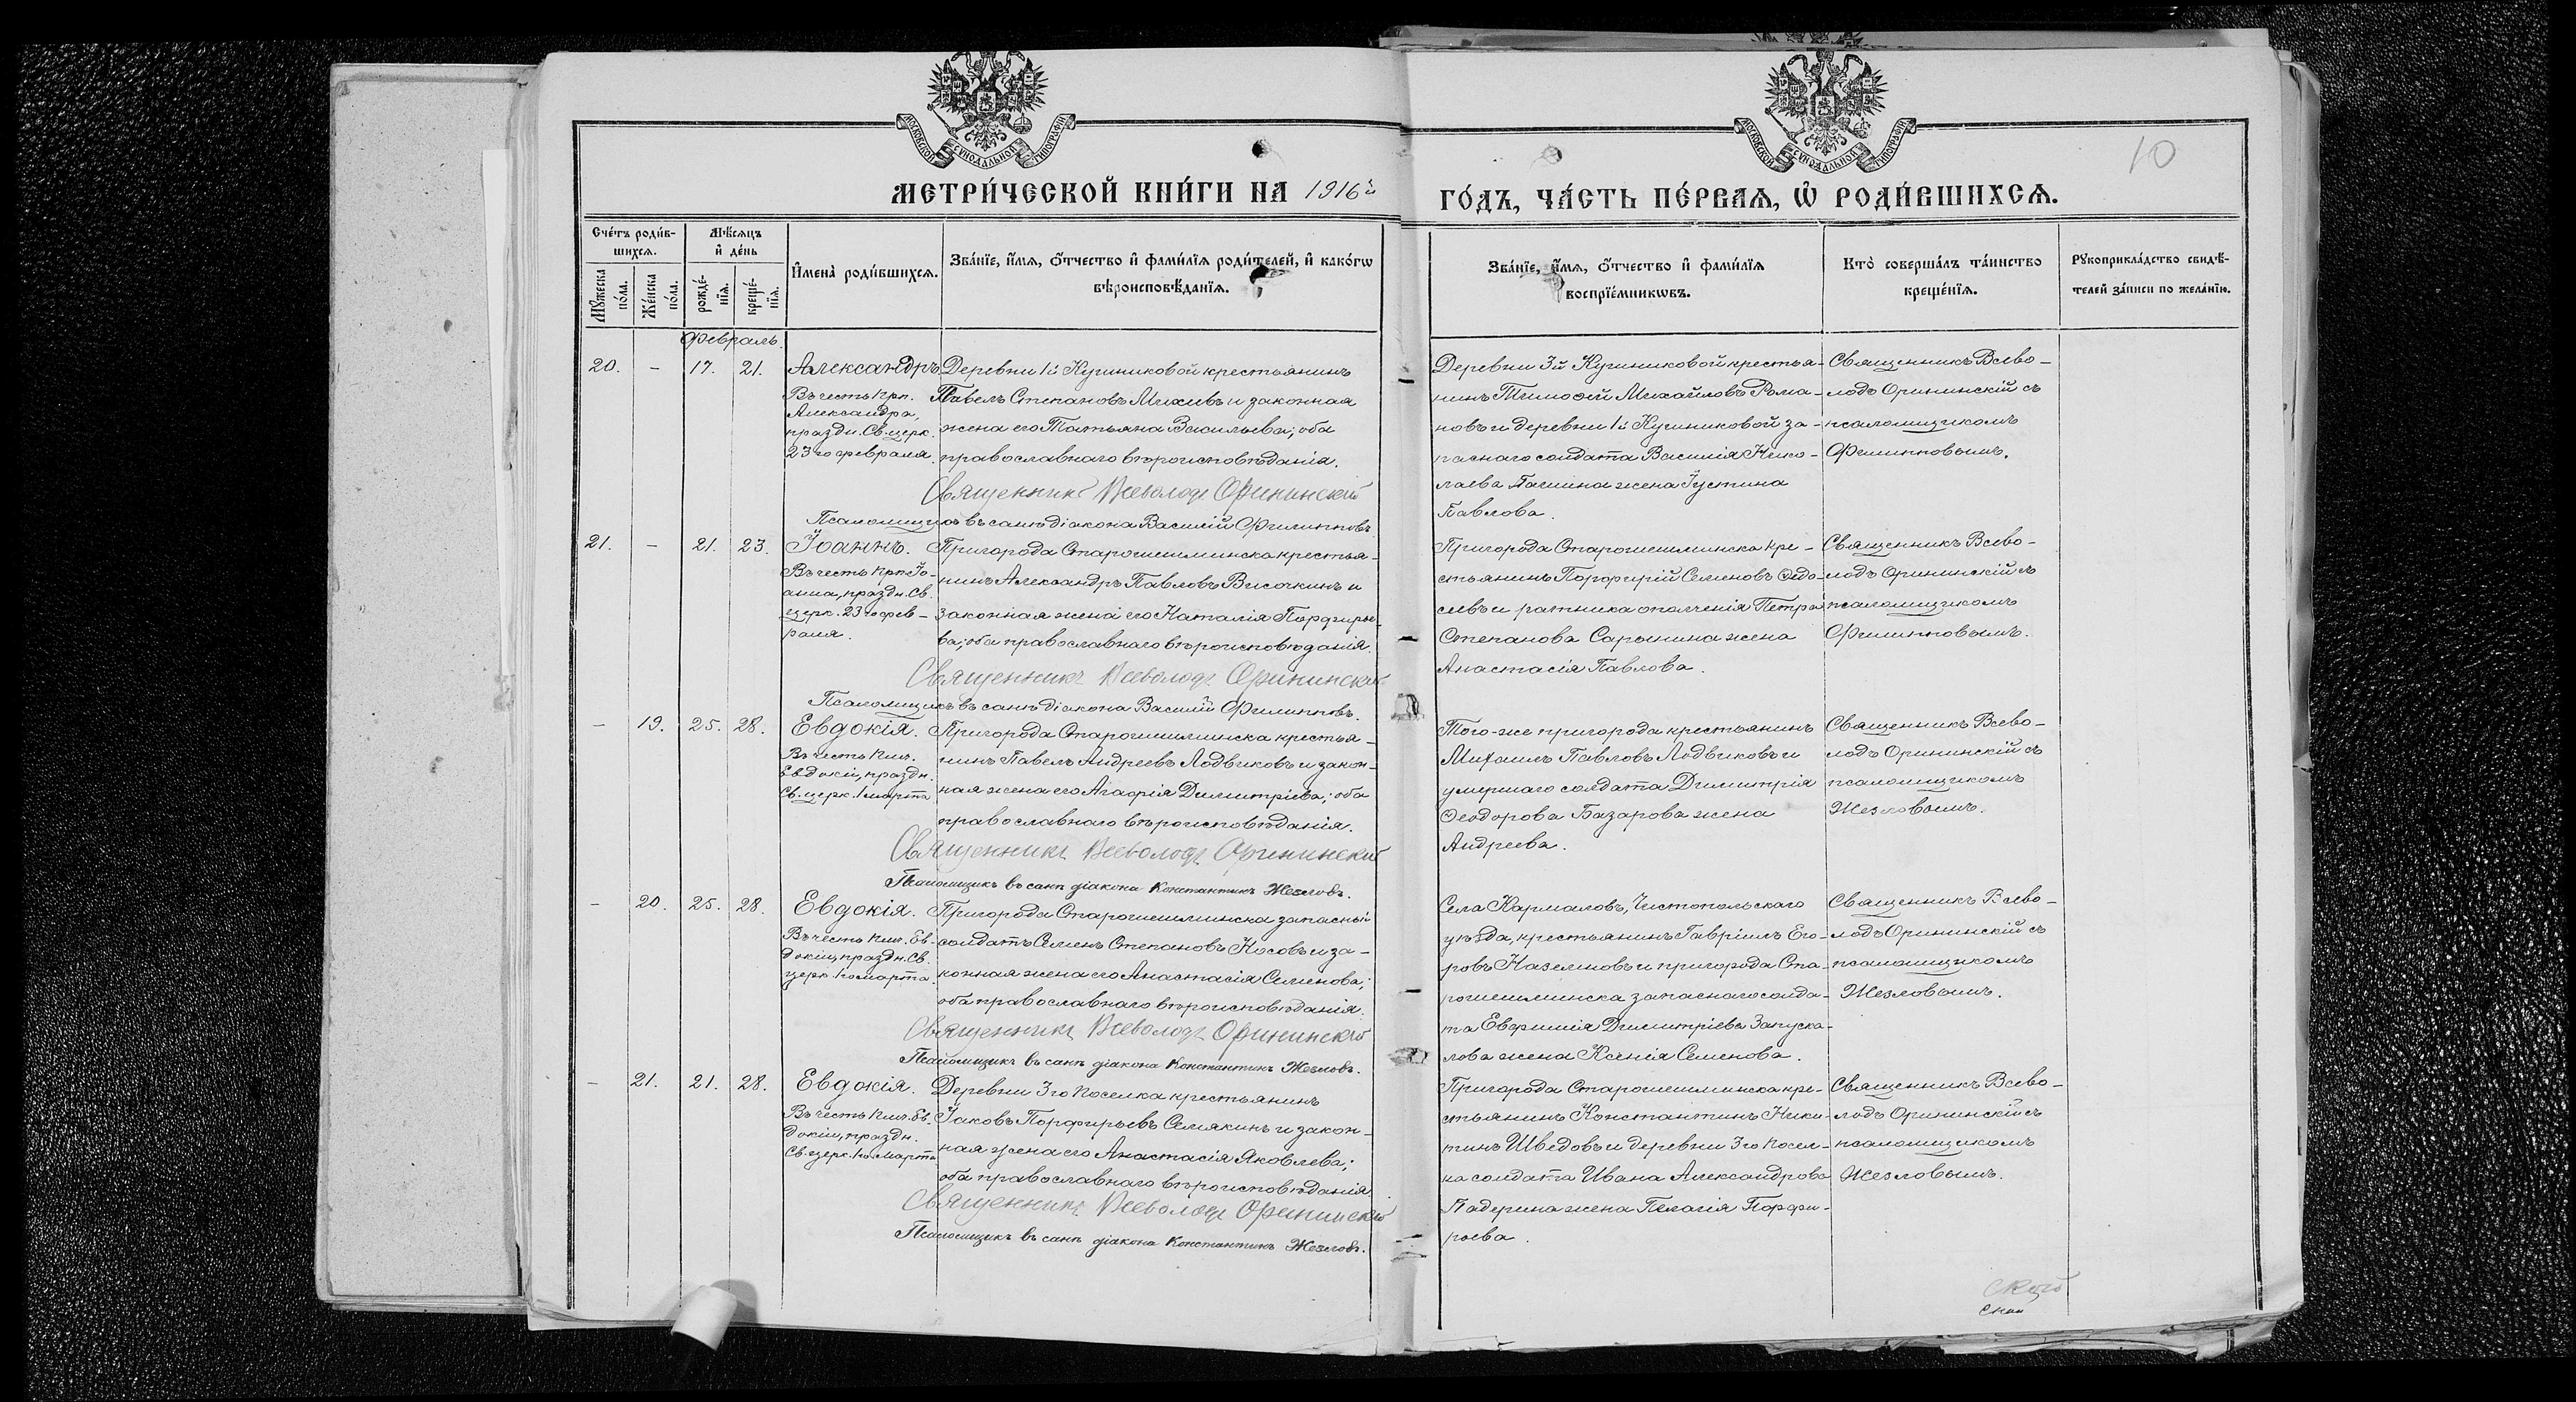 МОСКОВСКОЙ СѴНОДАЛЬНОЙ ТИПОГРАФІИ
МОСКОВСКОЙ СѴНОДАЛЬНОЙ ТИПОГРАФІИ
10
МЕТРИ́ЧЕСКОЙ КНИ́ГИ НА 1916й
ГО́ДЪ, ЧА́СТЬ ПЕ́РВАѦ, Ѡ҆ РОДИ́ВШИХСѦ.
Сче́тъ роди́в-
шихсѧ.
Мꙋжеска по́ла.
Же́нска по́ла.
Мѣ́сѧцъ
и҆ де́нь
рожде́-нїѧ.
креще́-нїѧ.
И҆мена̀ роди́вшихсѧ.
Зва́нїе, и҆́мѧ, ѻ҆́тчество и҆ фами́лїѧ роди́телей, и҆ како́гѡ
вѣроисповѣ́данїѧ.
Зва́нїе, и҆́мѧ, ѻ҆́тчество и҆ фами́лїѧ
воспрїе́мникѡвъ.
Кто̀ соверша́лъ та́инство
креще́нїѧ.
Рꙋкоприкла́дство свидѣ́-
телей за́писи по жела́нїю.
Февраль.
20. – 17. 21. Александръ
Въ честь Прп.
Александра,
праздн. Св. церк.
23го февраля.
Деревни 1й Кушниковой крестьянинъ
Павелъ Степановъ Михеевъ и законная
жена его Татьяна Васильева; оба
православнаго вѣроисповѣданія.
Священникъ Всеволодъ Орининскій
Псаломщикъ въ санѣ діакона Василій Филипповъ.
Деревни 3й Кушниковой крестья-
нинъ Тимоѳей Михайловъ Рома-
новъ и деревни 1й Кушниковой за-
паснаго солдата Василія Нико-
лаева жена Іустина
Павлова.
Священникъ Всево-
лодъ Орининскій съ
псаломщикомъ
Филипповымъ.
21. – 21. 23. Іоаннъ.
Въ честь Прп. Іо-
анна, праздн. Св.
церк. 23го фев-
раля.
Пригорода Старошешминска крестья-
нинъ Александръ Павловъ Височкинъ и
законная жена его Наталія Порфирье-
ва; оба православнаго вѣроисповѣданія.
Священникъ Всеволодъ Орининскій
Псаломщикъ въ санѣ діакона Василій Филипповъ.
Пригорода Старошешминска кре-
стьянинъ Порфирій Семеновъ Ѳедо-
сѣевъ и ратника ополченія Петра
Степанова Сарынина жена
Анастасія Павлова.
Священникъ Всево-
лодъ Орининскій съ
псаломщикомъ
Филипповымъ.
– 19. 25. 28. Евдокія.
Въ честь Пмч.
Евдокіи, праздн.
Св. церк. 1 марта
Пригорода Старошешминска крестья-
нинъ Павелъ Андреевъ Лодвиковъ и закон-
ная жена его Агафія Димитріева; оба
православнаго вѣроисповѣданія.
Священникъ Всеволодъ Орининскій
Псаломщикъ въ санѣ діакона Константинъ Жезловъ.
Того-же пригорода крестьянинъ
Михаилъ Павловъ Лодвиковъ и
умершаго солдата Димитрія
Ѳеодорова Базарова жена
Андреева.
Священникъ Всево-
лодъ Орининскій съ
псаломщикомъ
Жезловымъ.
– 20. 25. 28. Евдокія.
Въ честь Пмч. Ев-
докіи, праздн. Св.
церк. 1го марта.
Пригорода Старошешминска запасный
солдатъ Семенъ Степановъ Носовъ и за-
конная жена его Анастасія Семенова;
оба православнаго вѣроисповѣданія.
Священникъ Всеволодъ Орининскій
Псаломщикъ въ санѣ діакона Константинъ Жезловъ.
Села Кармаловъ, Чистопольскаго
уѣзда, крестьянинъ Гавріилъ Его-
ровъ Назелновъ и пригорода Ста-
рошешминска запаснаго солда-
та Евфимія Димитріева Запуска-
лова жена Ксенія Семенова.
Священникъ Всево-
лодъ Орининскій съ
псаломщикомъ
Жезловымъ.
– 21. 21. 28. Евдокія.
Въ честь Пмч. Ев-
докіи, праздн.
Св. церк. 1го марта
Деревни 3го Поселка крестьянинъ
Іаковъ Порфирьевъ Семякинъ и закон-
ная жена его Анастасія Яковлева;
оба православнаго вѣроисповѣданія.
Священникъ Всеволодъ Орининскій
Псаломщикъ въ санѣ діакона Константинъ Жезловъ.
Пригорода Старошешминска кре-
стьянинъ Константинъ Ники-
тинъ Шведовъ и деревни 3го Посел-
ка солдата Ивана Александрова
Падерина жена Пелагія Порфи-
рьева.
Священникъ Всево-
лодъ Орининскій съ
псаломщикомъ
Жезловымъ.